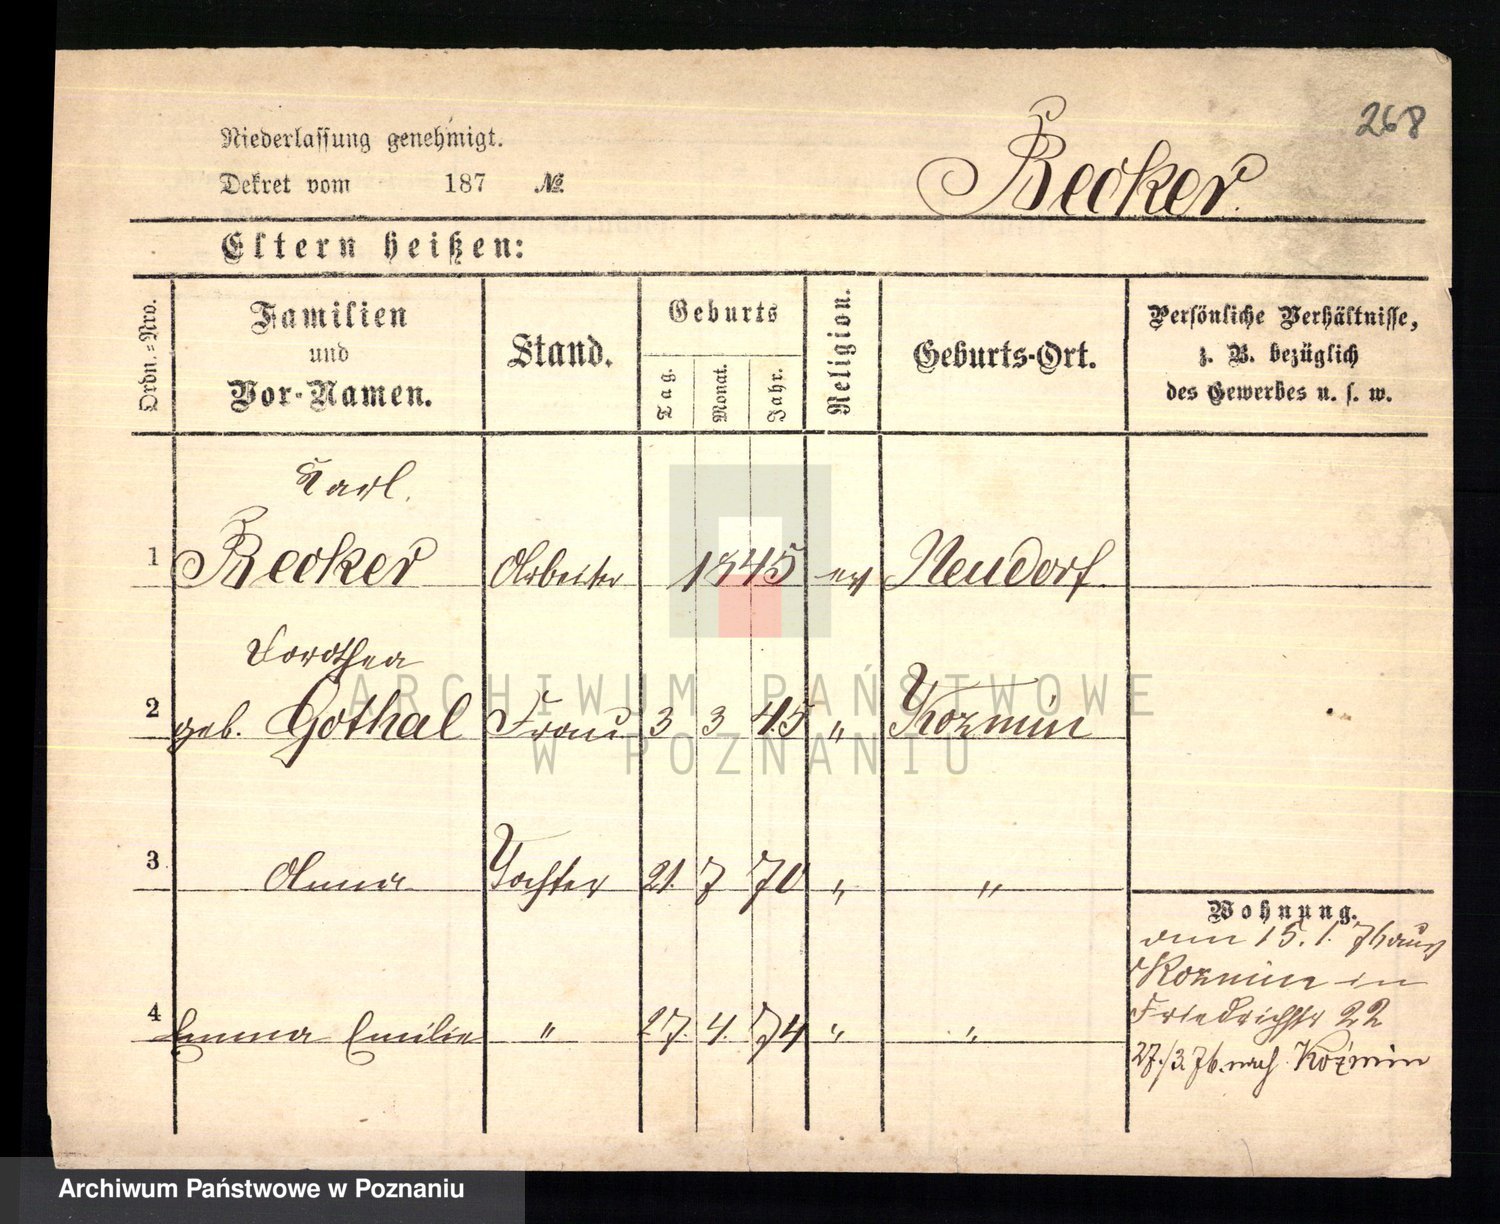 268
Niederlassung genehmigt.
Dekret vom 187 №
Becker.
Eltern heißen:
Ordn.=Nro.
Familien
und
Vor-Namen.
Stand.
Geburts
Tag.
Monat.
Jahr.
Religion.
Geburts-Ort.
Persönliche Verhältnisse,
z. B. bezüglich
des Gewerbes u. s. w.
Karl.
1 Becker Arbeiter 1845 ev Neudorf.
Dorothea
2 geb. Gothal Frau 3 3 45 " Kozmin
3 Anna Tochter 21. 7 70 " "
4 Emma Emilie " 27. 4. 74 " "
Wohnung.
15. 1. 76 aus
Kozmin in
Friedrichstr 22
27./3. 76. nach Kozmin
ARCHIWUM PAŃSTWOWE
W POZNANIU
Archiwum Państwowe w Poznaniu